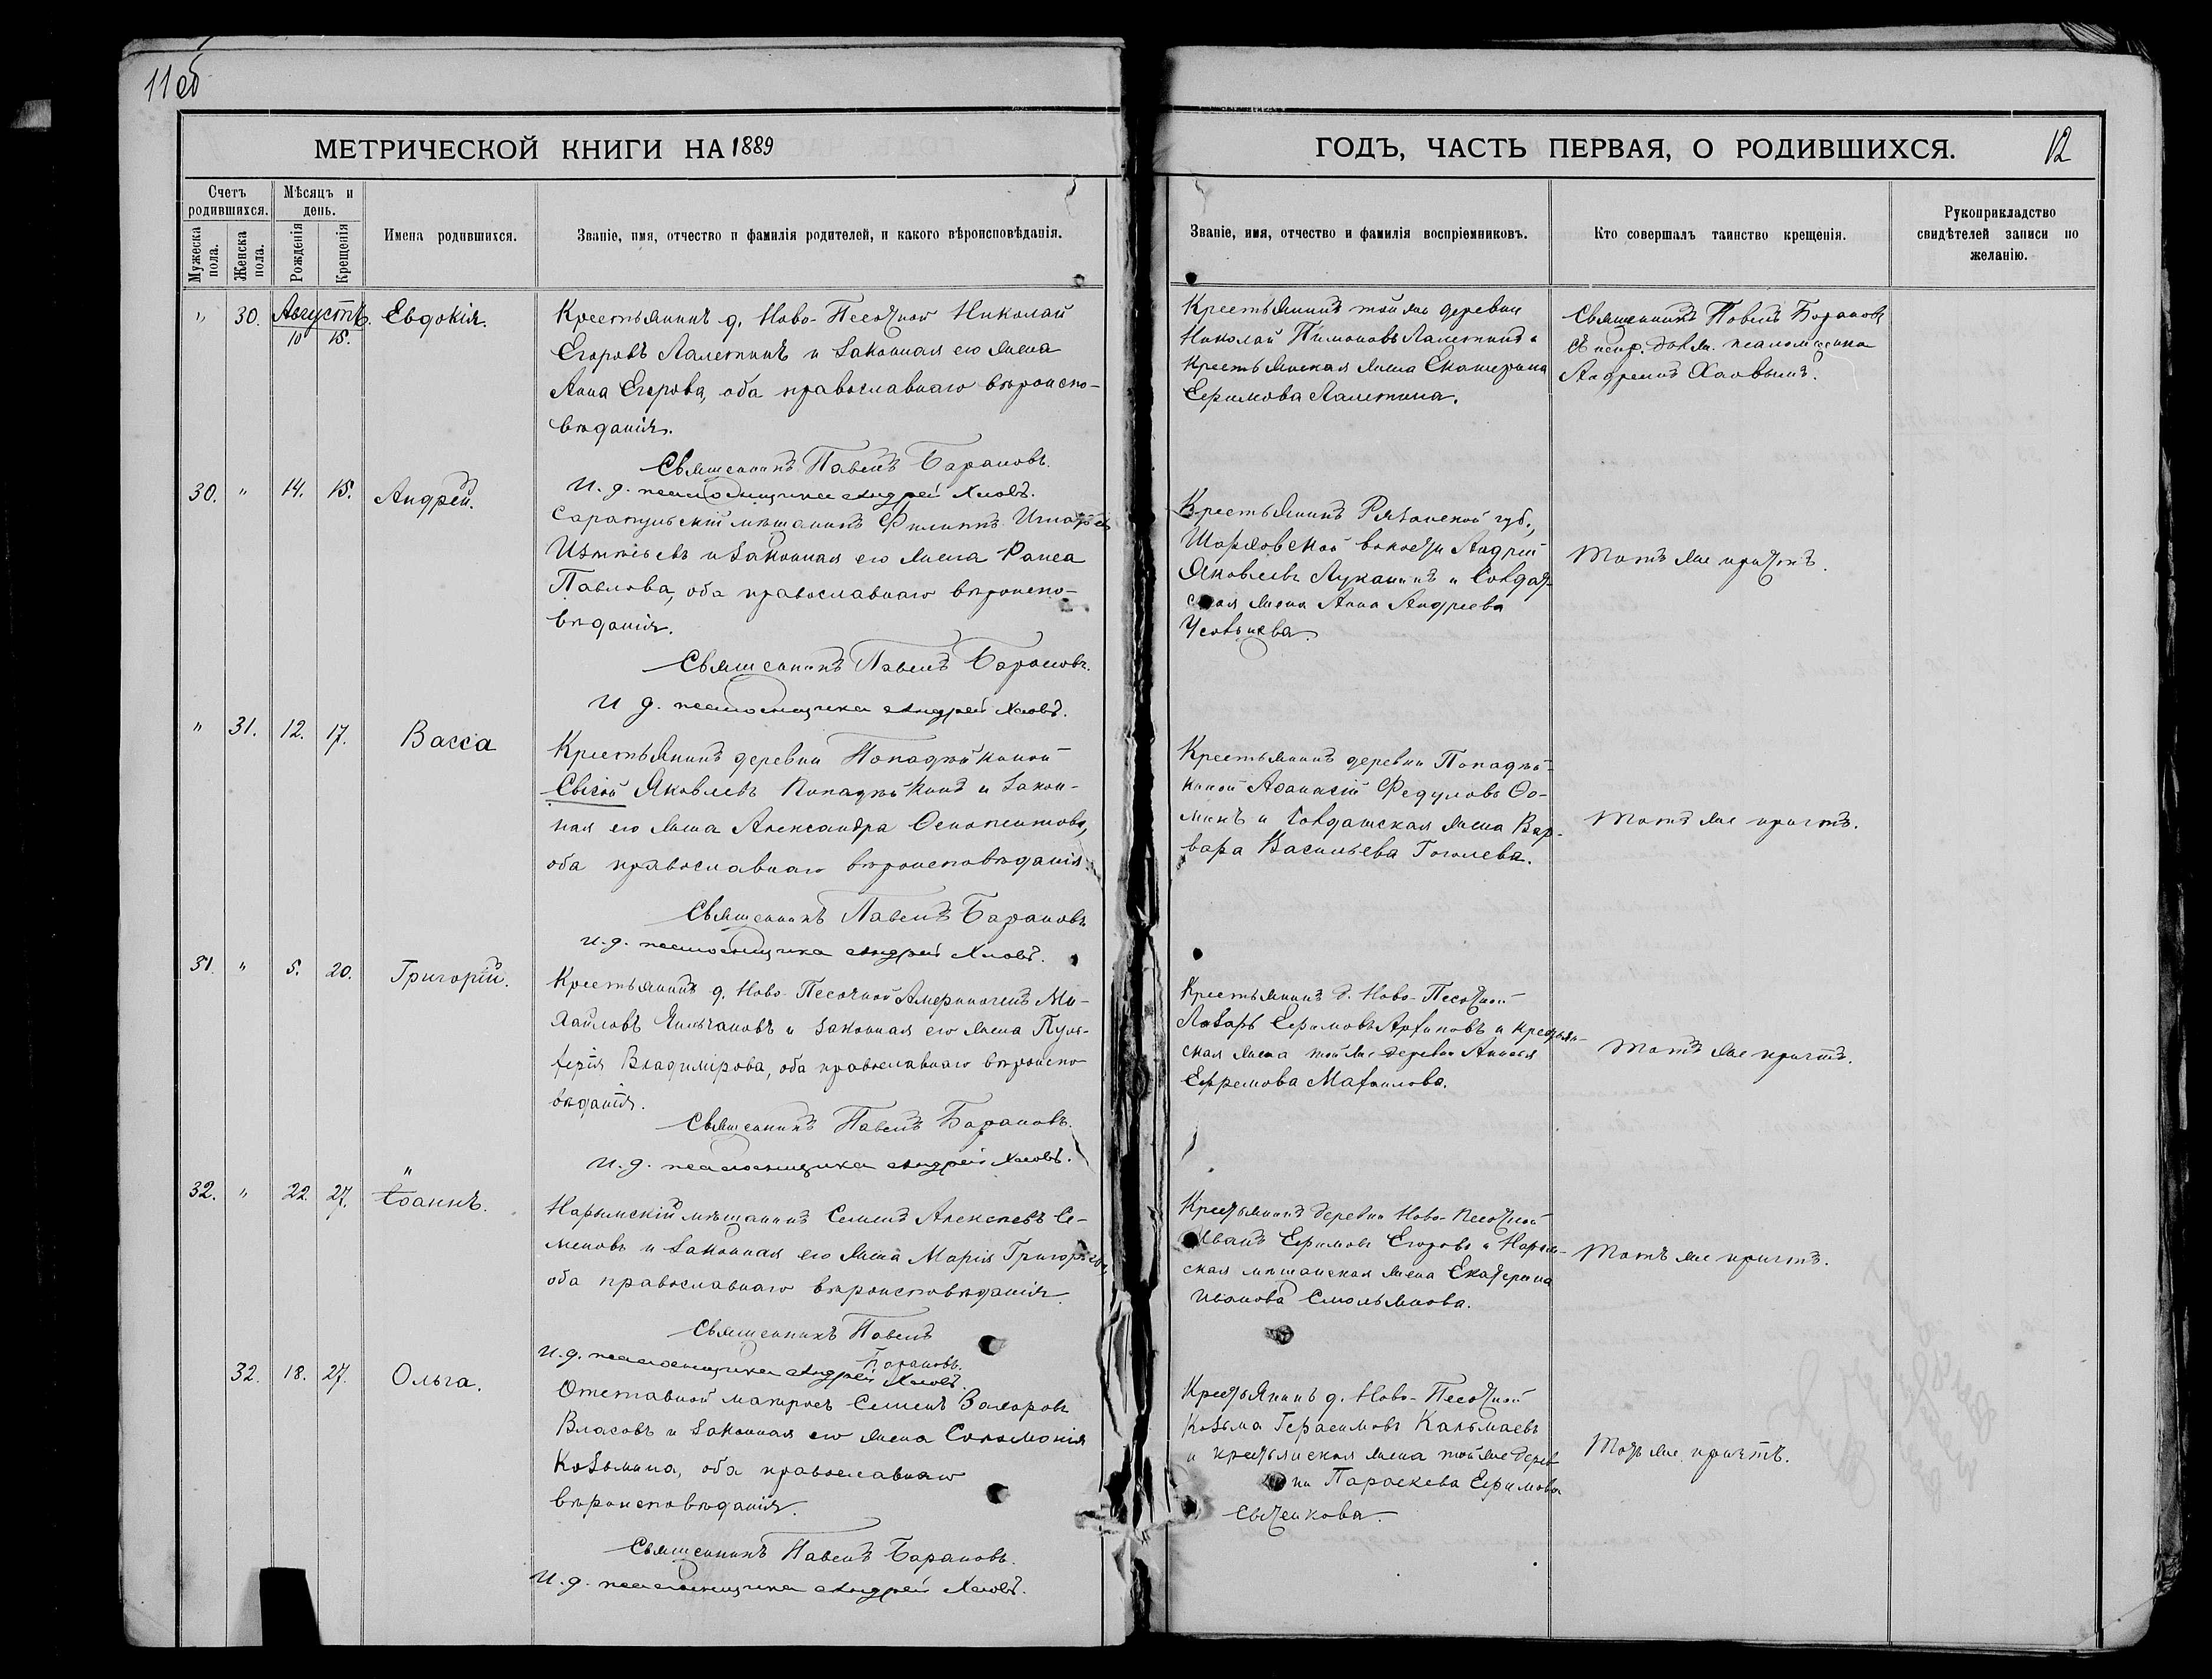 11об
МЕТРИЧЕСКОЙ КНИГИ НА 1889
Счетъ родившихся.
Мужеска пола.
Женска пола.
Мѣсяцъ и день.
Рожденія
Крещенія
Имена родившихся.
Званіе, имя, отчество и фамилія родителей, и какого вѣроисповѣданія.
" 30. Августъ. 10 15. Евдокія.
Крестьянинъ д. Ново-Песочной Николай
Егоровъ Лалетинъ и законная его жена
Анна Егорова, оба православнаго вѣроиспо-
вѣданія.
Священникъ Павелъ Барановъ.
И. д. псаломщика Андрей Хаовъ.
30. " 14. 15. Андрей.
Сарапульскій мѣщанинъ Филиппъ
и законная его жена Раиса
Павлова, оба православнаго вѣроиспо-
вѣданія.
Священникъ Павелъ Барановъ.
И д. псаломщика Андрей Хаовъ.
" 31. 12. 17. Васса
Крестьянинъ деревни Попадѣйкиной
Яковлевъ Попадѣйкинъ и закон-
ная его жена Александра
оба православнаго вѣроисповѣданія
Священникъ Павелъ Барановъ
и. д. псаломщика Андрей Хаовъ.
31. " 5. 20. Григорій.
Крестьянинъ д. Ново-Песочной Ми-
хайловъ и законная его жена Пуль-
херія Владимірова, оба православнаго вѣроиспо
вѣданія.
Священникъ Павелъ Барановъ.
И. д. псаломщика Андрей Хаовъ.
32. " 22. 27. Іоаннъ.
Нарымскій мѣщанинъ Семенъ Алексѣевъ Се-
меновъ и законная его жена Марія Григорьева,
оба православнаго вѣроисповѣданія.
Священникъ Павелъ
Барановъ.
И. д. псаломщика Андрей Хаовъ.
32. 18. 27. Ольга.
Отставной матросъ Семенъ Захаровъ
Власовъ и законная его жена Соломонія
Козьмина, оба православнаго
вѣроисповѣданія.
Священникъ Павелъ Барановъ.
И. д. псаломщика Андрей Хаовъ.
ГОДЪ, ЧАСТЬ ПЕРВАЯ, О РОДИВШИХСЯ.
12
Званіе, имя, отчество и фамилія воспріемниковъ.
Кто совершалъ таинство крещенія.
Рукоприкладство свидѣтелей записи по желанію.
Крестьянинъ той же деревни
Николай Пимоновъ Лалетинъ и
Крестьянская жена Екатерина
Ефимова Лалетина.
Священникъ Павелъ Барановъ
съ испр. долж. псаломщика
Андреемъ Хаовымъ.
Крестьянинъ Рязанской губ.,
волости Андрей
Яковлевъ Луканинъ и Солдат-
ская жена Анна Андреева
Тотъ же причтъ.
Крестьянинъ деревни Попадѣй-
киной Аѳанасій Федуловъ Ѳо-
минъ и Солдатская жена Вар-
вара Васильева Гоголева.
Тотъ же причтъ.
Крестьянинъ д. Ново-Песочной
Лазарь Ефимовъ Архиповъ и крестьян-
ская жена той же деревни
Ефремова Михайлова.
Тотъ же причтъ.
Крестьянинъ деревни Ново-Песочной
Иванъ Ефимовъ Егоровъ и Нарым-
ская мѣщанская жена Екатерина
Иванова Смольянова.
Тотъ же причтъ.
Крестьянинъ д. Ново-Песочной
Козьма Герасимовъ Калмаевъ
и крестьянская жена той же дерев
ни Параскева Ефимова
Сыченкова.
Тотъ же причтъ.